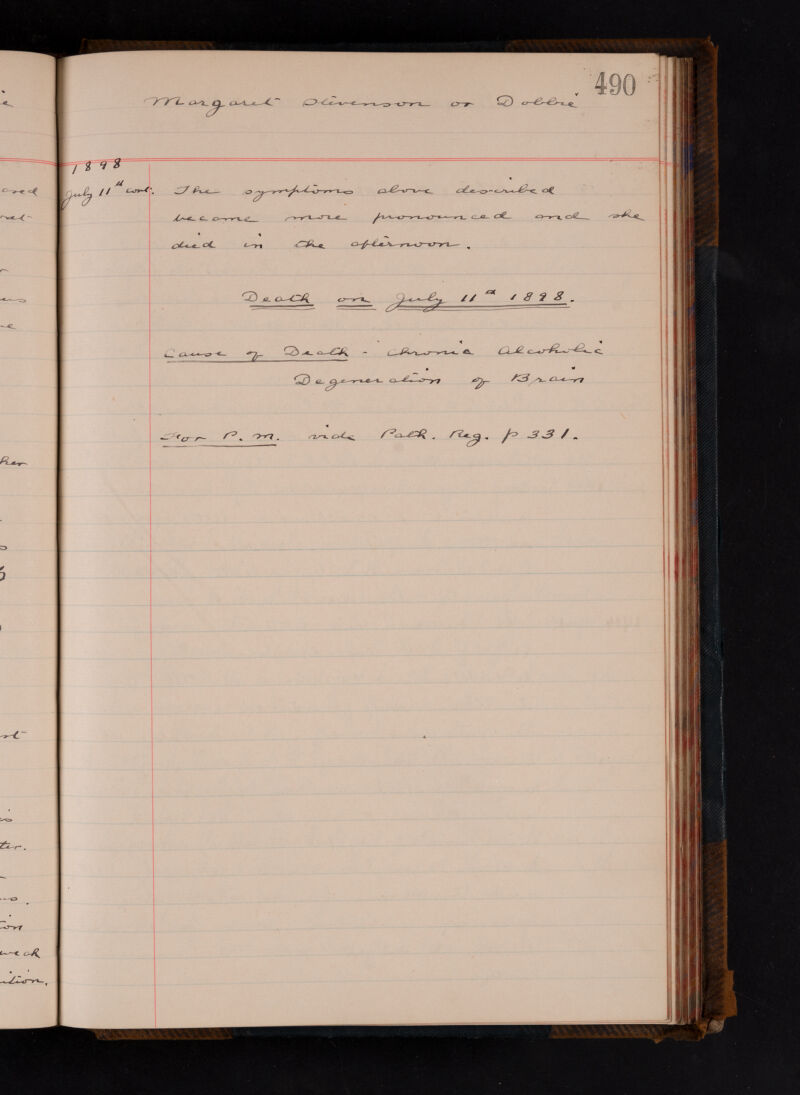 490
Margaret Stevenson or Dobbie
1898
July 11th cont. The symptoms above described
became more pronounced and she
died in the afternoon.
Death on July 11th 1898.
Cause of Death - Chronic Alcoholic
Degeneration of Brain
For P.M. vide Path. Reg. p 331.
her
ter.
weak